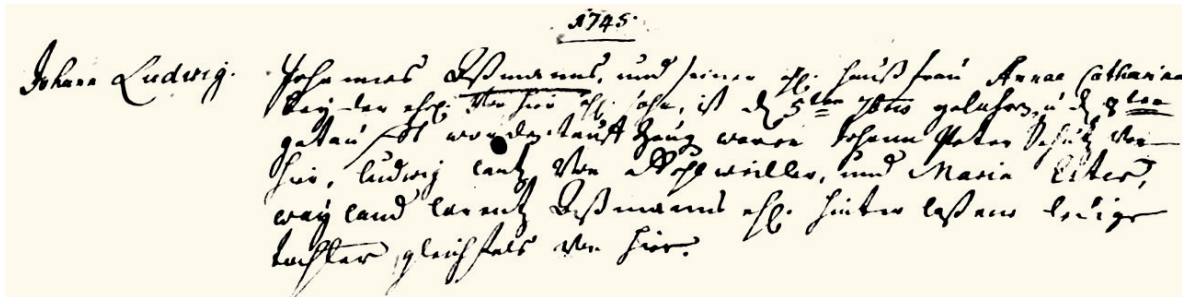 1745.
Johann Ludwig. Johannes Oßmanns, und seiner ehl. Hauß frau Annae Catharinae
beyder ehl. von hier ehl. sohn, ist d. 5ten 7bris gebohren, u. d. 8ten
getauft worden. tauff Zeug. waren Johann Peter Schütz von
hier, Ludwig Lentz von Wohlweiller, und Maria
weyland Lorentz Oßmanns ehl. hinter laßene ledige
tochter, gleichfals von hier.